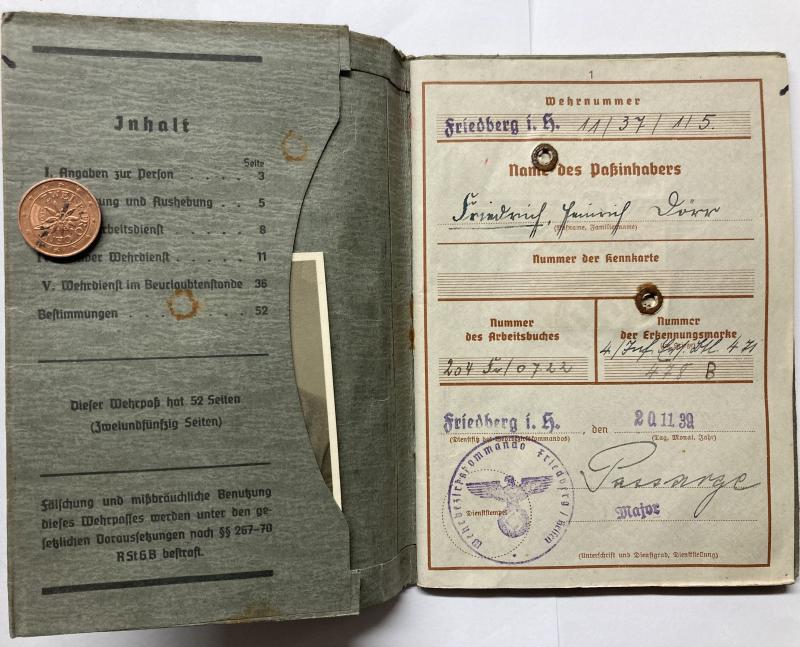 Inhalt
Seite
I. Angaben zur Person . . . . . 3
ung und Aushebung . . 5
rbeitsdienst . . . . . 8
er Wehrdienst . . . . . 11
V. Wehrdienst im Beurlaubtenstande 36
Bestimmungen . . . . . . . 52
Dieser Wehrpaß hat 52 Seiten
(Zweiundfünfzig Seiten)
Fälschung und mißbräuchliche Benutzung
dieses Wehrpasses werden unter den ge-
setzlichen Voraussetzungen nach §§ 267–70
RStGB bestraft.
1
Wehrnummer
Friedberg i. H. 11/37/1/5.
Name des Paßinhabers
Friedrich, Heinrich Dörr
(Rufname, Familienname)
Nummer der Kennkarte
Nummer
des Arbeitsbuches
204 Fr/0722
Nummer
der Erkennungsmarke
4/Inf. Ers. Btl. 471
478 B
Friedberg i. H., den 20.11.39
(Dienstsitz des Wehrbezirkskommandos) (Tag, Monat, Jahr)
Wehrbezirkskommando Friedberg / Hessen
Dienststempel
Passarge
Major
(Unterschrift und Dienstgrad, Dienststellung)